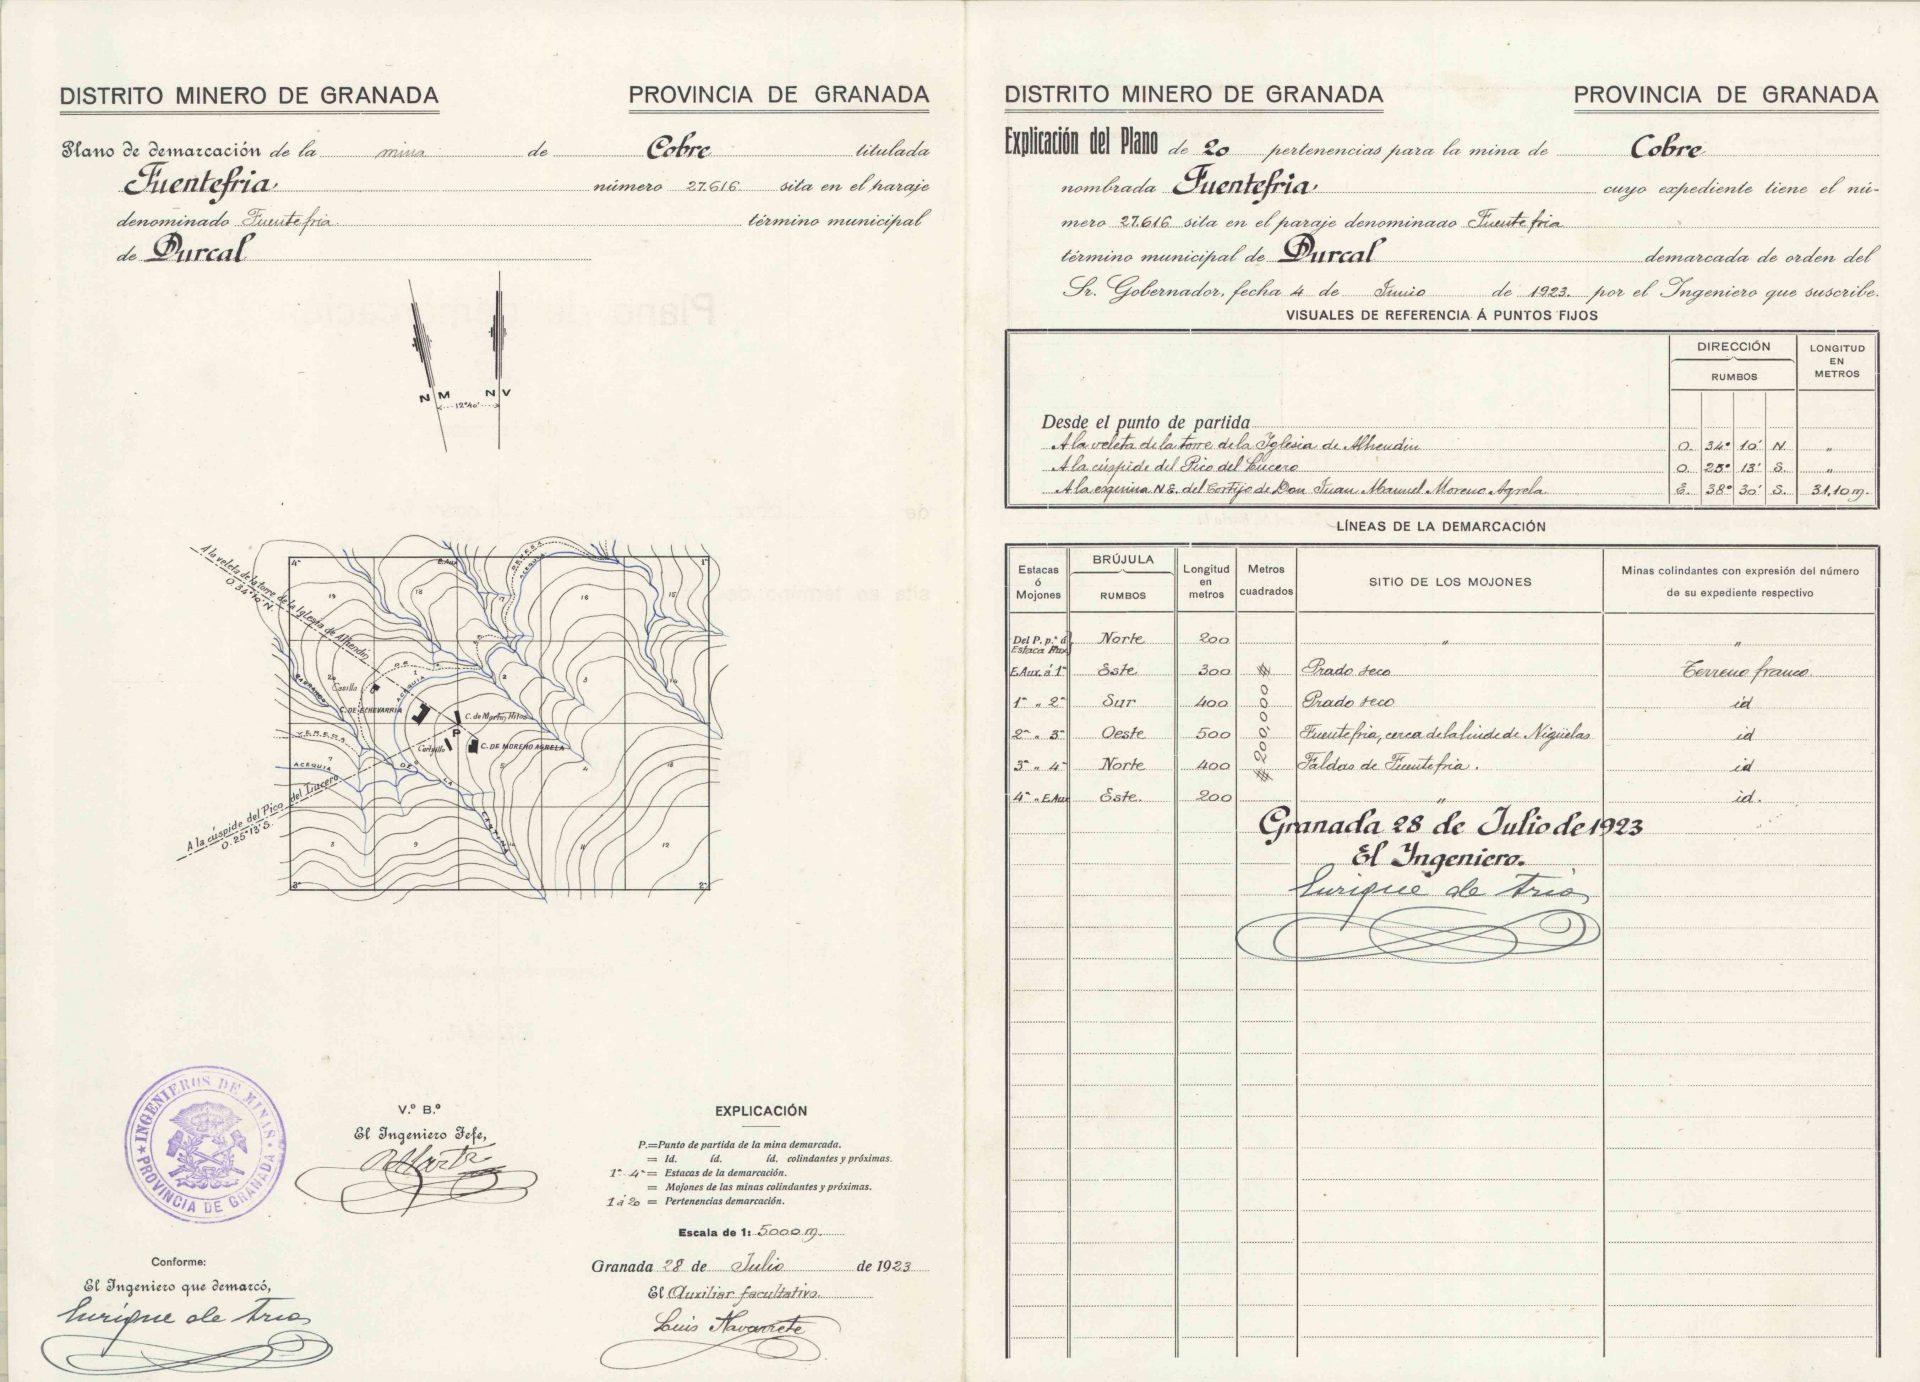 DISTRITO MINERO DE GRANADA
PROVINCIA DE GRANADA
Plano de demarcación de la mina de Cobre titulada
Fuentefria, número 27.616. sita en el paraje
denominado Fuentefria. término municipal
de Durcal
N M N V
12°40'
A la veleta de la torre de la Iglesia de Alhendin
O. 34° 10' N.
4ª
E. Aux.
VEREDA
ACEQUIA
1ª
19
18
17
16
15
20
Casilla
1
2
3
14
ACEQUIA
BARRANCO
C. DE ECHEVARRIA
C. de Martin Hitos
P
Cortijillo
C. DE MORENO AGRELA
VEREDA
7
ACEQUIA
DE
LA
5
4
13
A la cúspide del Pico del Lucero
O. 25° 13' S.
8
9
11
12
3ª
2ª
INGENIEROS DE MINAS
PROVINCIA DE GRANADA
V.º B.º
El Ingeniero Jefe,
EXPLICACIÓN
P.=Punto de partida de la mina demarcada.
= Id. íd. íd. colindantes y próximas.
1ª 4ª = Estacas de la demarcación.
= Mojones de las minas colindantes y próximas.
1 á 20 = Pertenencias demarcación.
Escala de 1: 5.000 m.
Granada 28 de Julio de 1923
El Auxiliar facultativo.
Luis Navarrete
Conforme:
El Ingeniero que demarcó,
Enrique de Trias
DISTRITO MINERO DE GRANADA
PROVINCIA DE GRANADA
Explicación del Plano de 20 pertenencias para la mina de Cobre
nombrada Fuentefria, cuyo expediente tiene el nú-
mero 27.616 sita en el paraje denominado Fuentefria
término municipal de Durcal demarcada de orden del
Sr. Gobernador, fecha 4 de Junio de 1923. por el Ingeniero que suscribe.
VISUALES DE REFERENCIA Á PUNTOS FIJOS
DIRECCIÓN
RUMBOS
LONGITUD EN METROS
Desde el punto de partida
A la veleta de la torre de la Iglesia de Alhendin O. 34° 10' N. "
A la cúspide del Pico del Lucero O. 25° 13' S. "
A la esquina N.E. del Cortijo de Don Juan Manuel Moreno Agrela E. 38° 30' S. 31,10 m.
LÍNEAS DE LA DEMARCACIÓN
Estacas ó Mojones
BRÚJULA
RUMBOS
Longitud en metros
Metros cuadrados
SITIO DE LOS MOJONES
Minas colindantes con expresión del número
de su expediente respectivo
Del P. p.ª á Estaca Aux. Norte 200 " "
E. Aux. á 1ª Este 300 Prado seco Terreno franco
1ª " 2ª Sur 400 Prado seco id
2ª " 3ª Oeste 500 Fuentefria, cerca de la linde de Nigüelas id
3ª " 4ª Norte 400 Faldas de Fuentefria. id
4ª " E. Aux Este. 200 " id.
# 200,000 #
Granada 28 de Julio de 1923
El Ingeniero.
Enrique de Trias